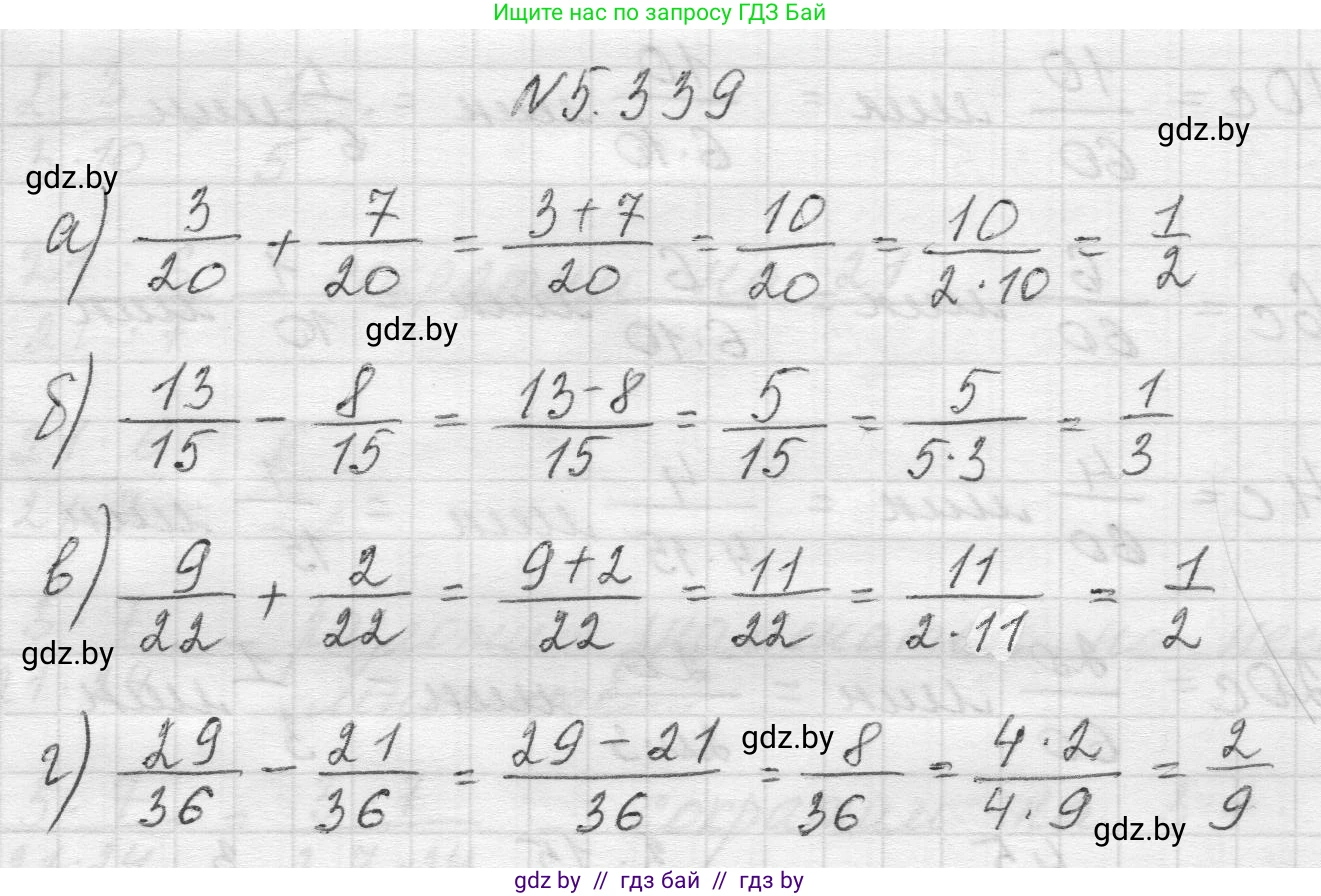 Ищите нас по запросу ГДЗ Бай
N5.339
gdz.by
gdz.by
а) 3/20 + 7/20 = 3+7/20 = 10/20 = 10/2·10 = 1/2
gdz.by
б) 13/15 - 8/15 = 13-8/15 = 5/15 = 5/5·3 = 1/3
в) 9/22 + 2/22 = 9+2/22 = 11/22 = 11/2·11 = 1/2
gdz.by
г) 29/36 - 21/36 = 29-21/36 = 8/36 = 4·2/4·9 = 2/9
gdz.by
gdz.by
gdz by // гдз бай // гдз by